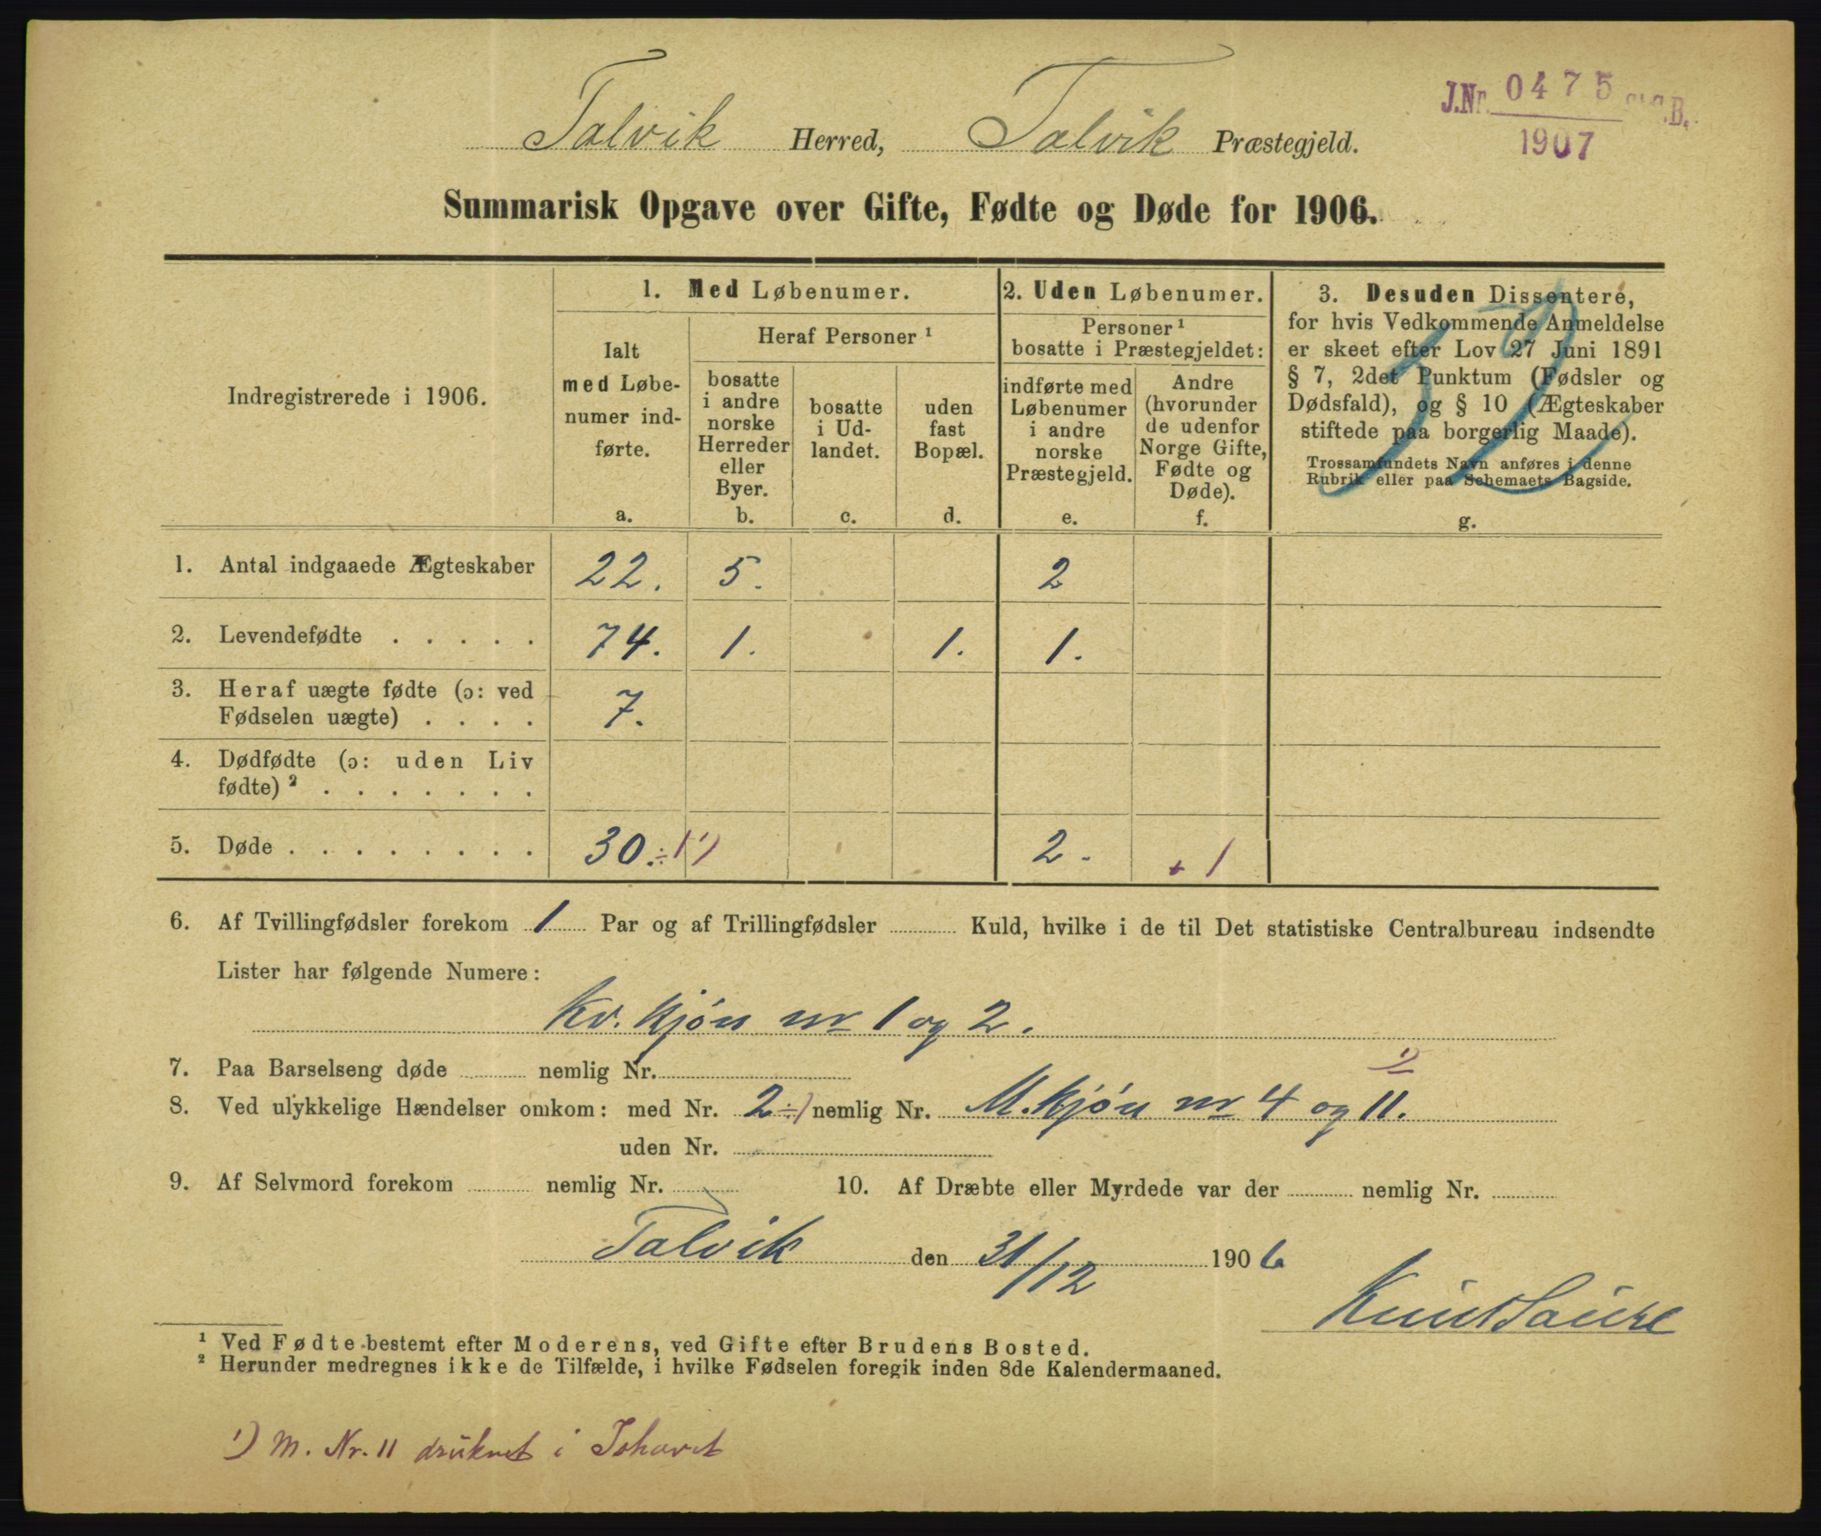 Talvik Herred, Talvik Præstegjeld.
J.Nr. 0475 St.C.B.
1907
Summarisk Opgave over Gifte, Fødte og Døde for 1906.
12
Indregistrerede i 1906.
1. Med Løbenumer.
Ialt
med Løbe-
numer ind-
førte.
a.
Heraf Personer ¹
bosatte
i andre
norske
Herreder
eller
Byer.
b.
bosatte
i Ud-
landet.
c.
uden
fast
Bopæl.
d.
2. Uden Løbenumer.
Personer ¹
bosatte i Præstegjeldet:
indførte med
Løbenumer
i andre
norske
Præstegjeld.
e.
Andre
(hvorunder
de udenfor
Norge Gifte,
Fødte og
Døde).
f.
3. Desuden Dissentere,
for hvis Vedkommende Anmeldelse
er skeet efter Lov 27 Juni 1891
§ 7, 2det Punktum (Fødsler og
Dødsfald), og § 10 (Ægteskaber
stiftede paa borgerlig Maade).
Trossamfundets Navn anføres i denne
Rubrik eller paa Schemaets Bagside.
g.
1. Antal indgaaede Ægteskaber 22. 5. 2
2. Levendefødte . . . . . 74. 1. 1. 1.
3. Heraf uægte fødte (ɔ: ved
Fødselen uægte) . . . . 7.
4. Dødfødte (ɔ: uden Liv
fødte) ² . . . . . . .
5. Døde . . . . . . . . 30. ÷1 ¹) 2. + 1
6. Af Tvillingfødsler forekom 1 Par og af Trillingfødsler Kuld, hvilke i de til Det statistiske Centralbureau indsendte
Lister har følgende Numere:
Kv. kjøn nr 1 og 2.
7. Paa Barselseng døde nemlig Nr.
8. Ved ulykkelige Hændelser omkom: med Nr. 2 ÷1 nemlig Nr. M. kjøn nr 4 og 11. ¹)
uden Nr.
9. Af Selvmord forekom nemlig Nr. 10. Af Dræbte eller Myrdede var der nemlig Nr.
Talvik den 31/12 1906
Knut Saure
¹ Ved Fødte bestemt efter Moderens, ved Gifte efter Brudens Bosted.
² Herunder medregnes ikke de Tilfælde, i hvilke Fødselen foregik inden 8de Kalendermaaned.
¹) M. Nr. 11 druknet i Ishavet